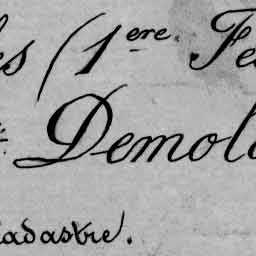 es (1ere. Fe
Demol
adastre.